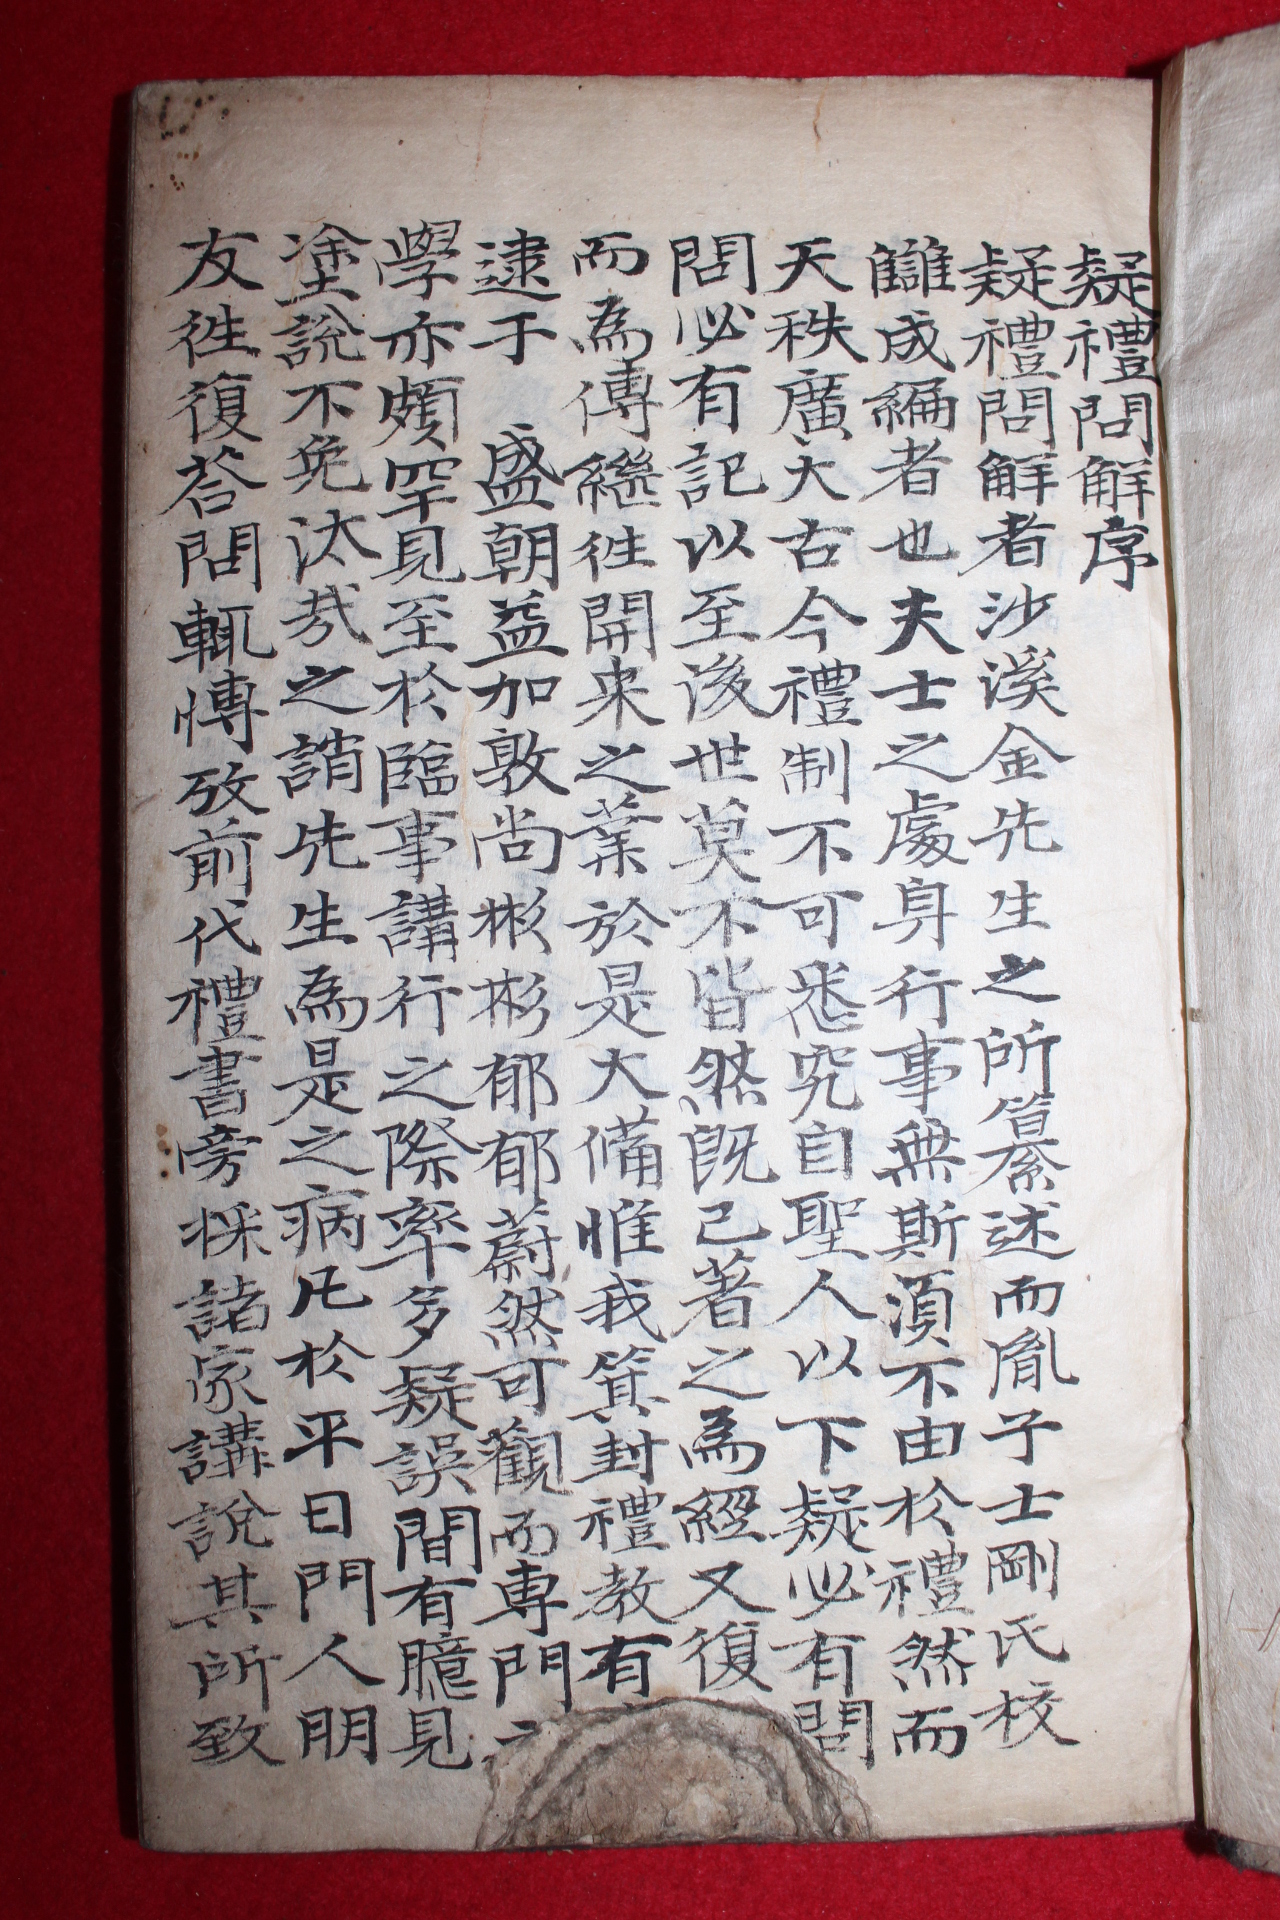 疑禮問解序
疑禮問解者沙溪金先生之所纂述而胤子士剛氏校
讎成編者也夫士之處身行事無斯須不由於禮然而
天秩廣大古今禮制不可悉究自聖人以下疑必有問
問必有記以至後世莫不皆然旣已著之為經又復
而為傳繼徃開来之業於是大備惟我箕封禮教有
逮于 盛朝益加敦尚彬彬郁郁蔚然可觀而專門
學亦頗罕見至於臨事講行之際率多疑誤間有臆見
塗說不免汰㦲之誚先生為是之病凡於平日門人朋
友徃復答問輒愽攷前代禮書旁採諸家講說其所致